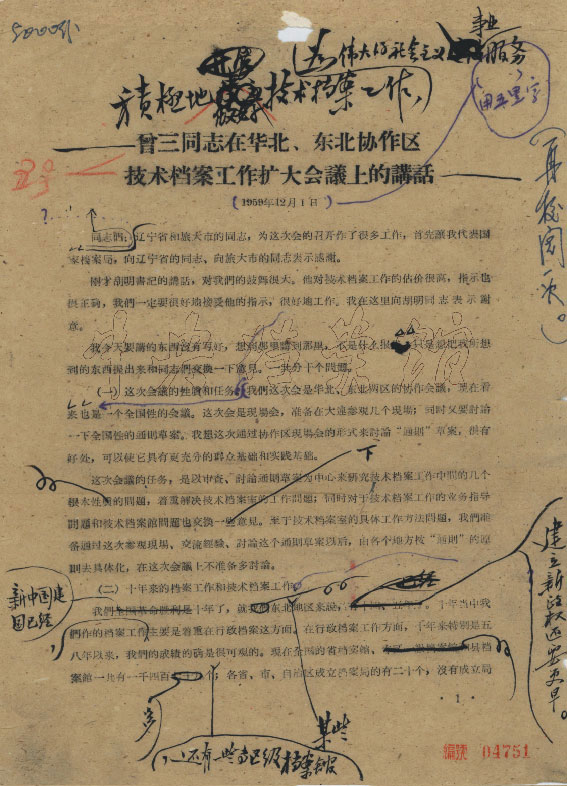 50001
开展
为伟大的社会主义
事业
服务
方積極地
技术档案工作
用五黑字
曾三同志在华北、东北协作区
技术档案工作扩大会議上的講話
（1959年12月1日）
再校閱一次。
同志們：辽宁省和旅大市的同志，为这次会的召开作了很多工作，首先讓我代表国
家档案局，向辽宁省的同志、向旅大市的同志表示感謝。
刚才胡明書記的講話，对我們的鼓舞很大。他对技术档案工作的估价很高，指示也
很正确，我們一定要很好地接受他的指示，很好地工作。我在这里向胡明同志表示謝
意。
我今天要講的东西沒有写好，想到那里講到那里，不是什么
到的东西提出来和同志們交換一下意見。一共分十个問題。
（一）这次会議的性質和任务
我們这次会是华北、东北两区的协作会議，現在看
来也是一个全国性的会議。这次会是現場会，准备在大連参观几个現場；同时又要討論
一下全国性的通則草案。我想这次通过协作区現場会的形式来討論“通則”草案，很有
好处，可以使它具有更充分的群众基础和实践基础。
这次会議的任务，是以审查、討論通則草案为中心来研究技术档案工作中間的几个
根本性质的問題，着重解决技术档案室的工作問題；同时对于技术档案工作的业务指导
問題和技术档案館問題也交換一些意見。至于技术档案室的具体工作方法問題，我們准
备通过这次参观現場、交流經驗、討論这个通則草案以后，由各个地方按“通則”的原
則去具体化，在这次会議上不准备多討論。
下
（二）十年来的档案工作和技术档案工作
新中国建
国已經
已經
我們
十年了，就
东北地区来說，
十年当中我
們作的档案工作主要是着重在行政档案这方面。在行政档案工作方面，十年来特別是五
八年以来，我們的成績的确是很可观的。現在全国的省档案館、
县档
案館一共有一千四百
个；各省、市、自治区成立档案局的有二十个，沒有成立局
建立新政权还要更早。
· 1 ·
多
某些
还有一些
級档案館
編號 04751
中央档案館